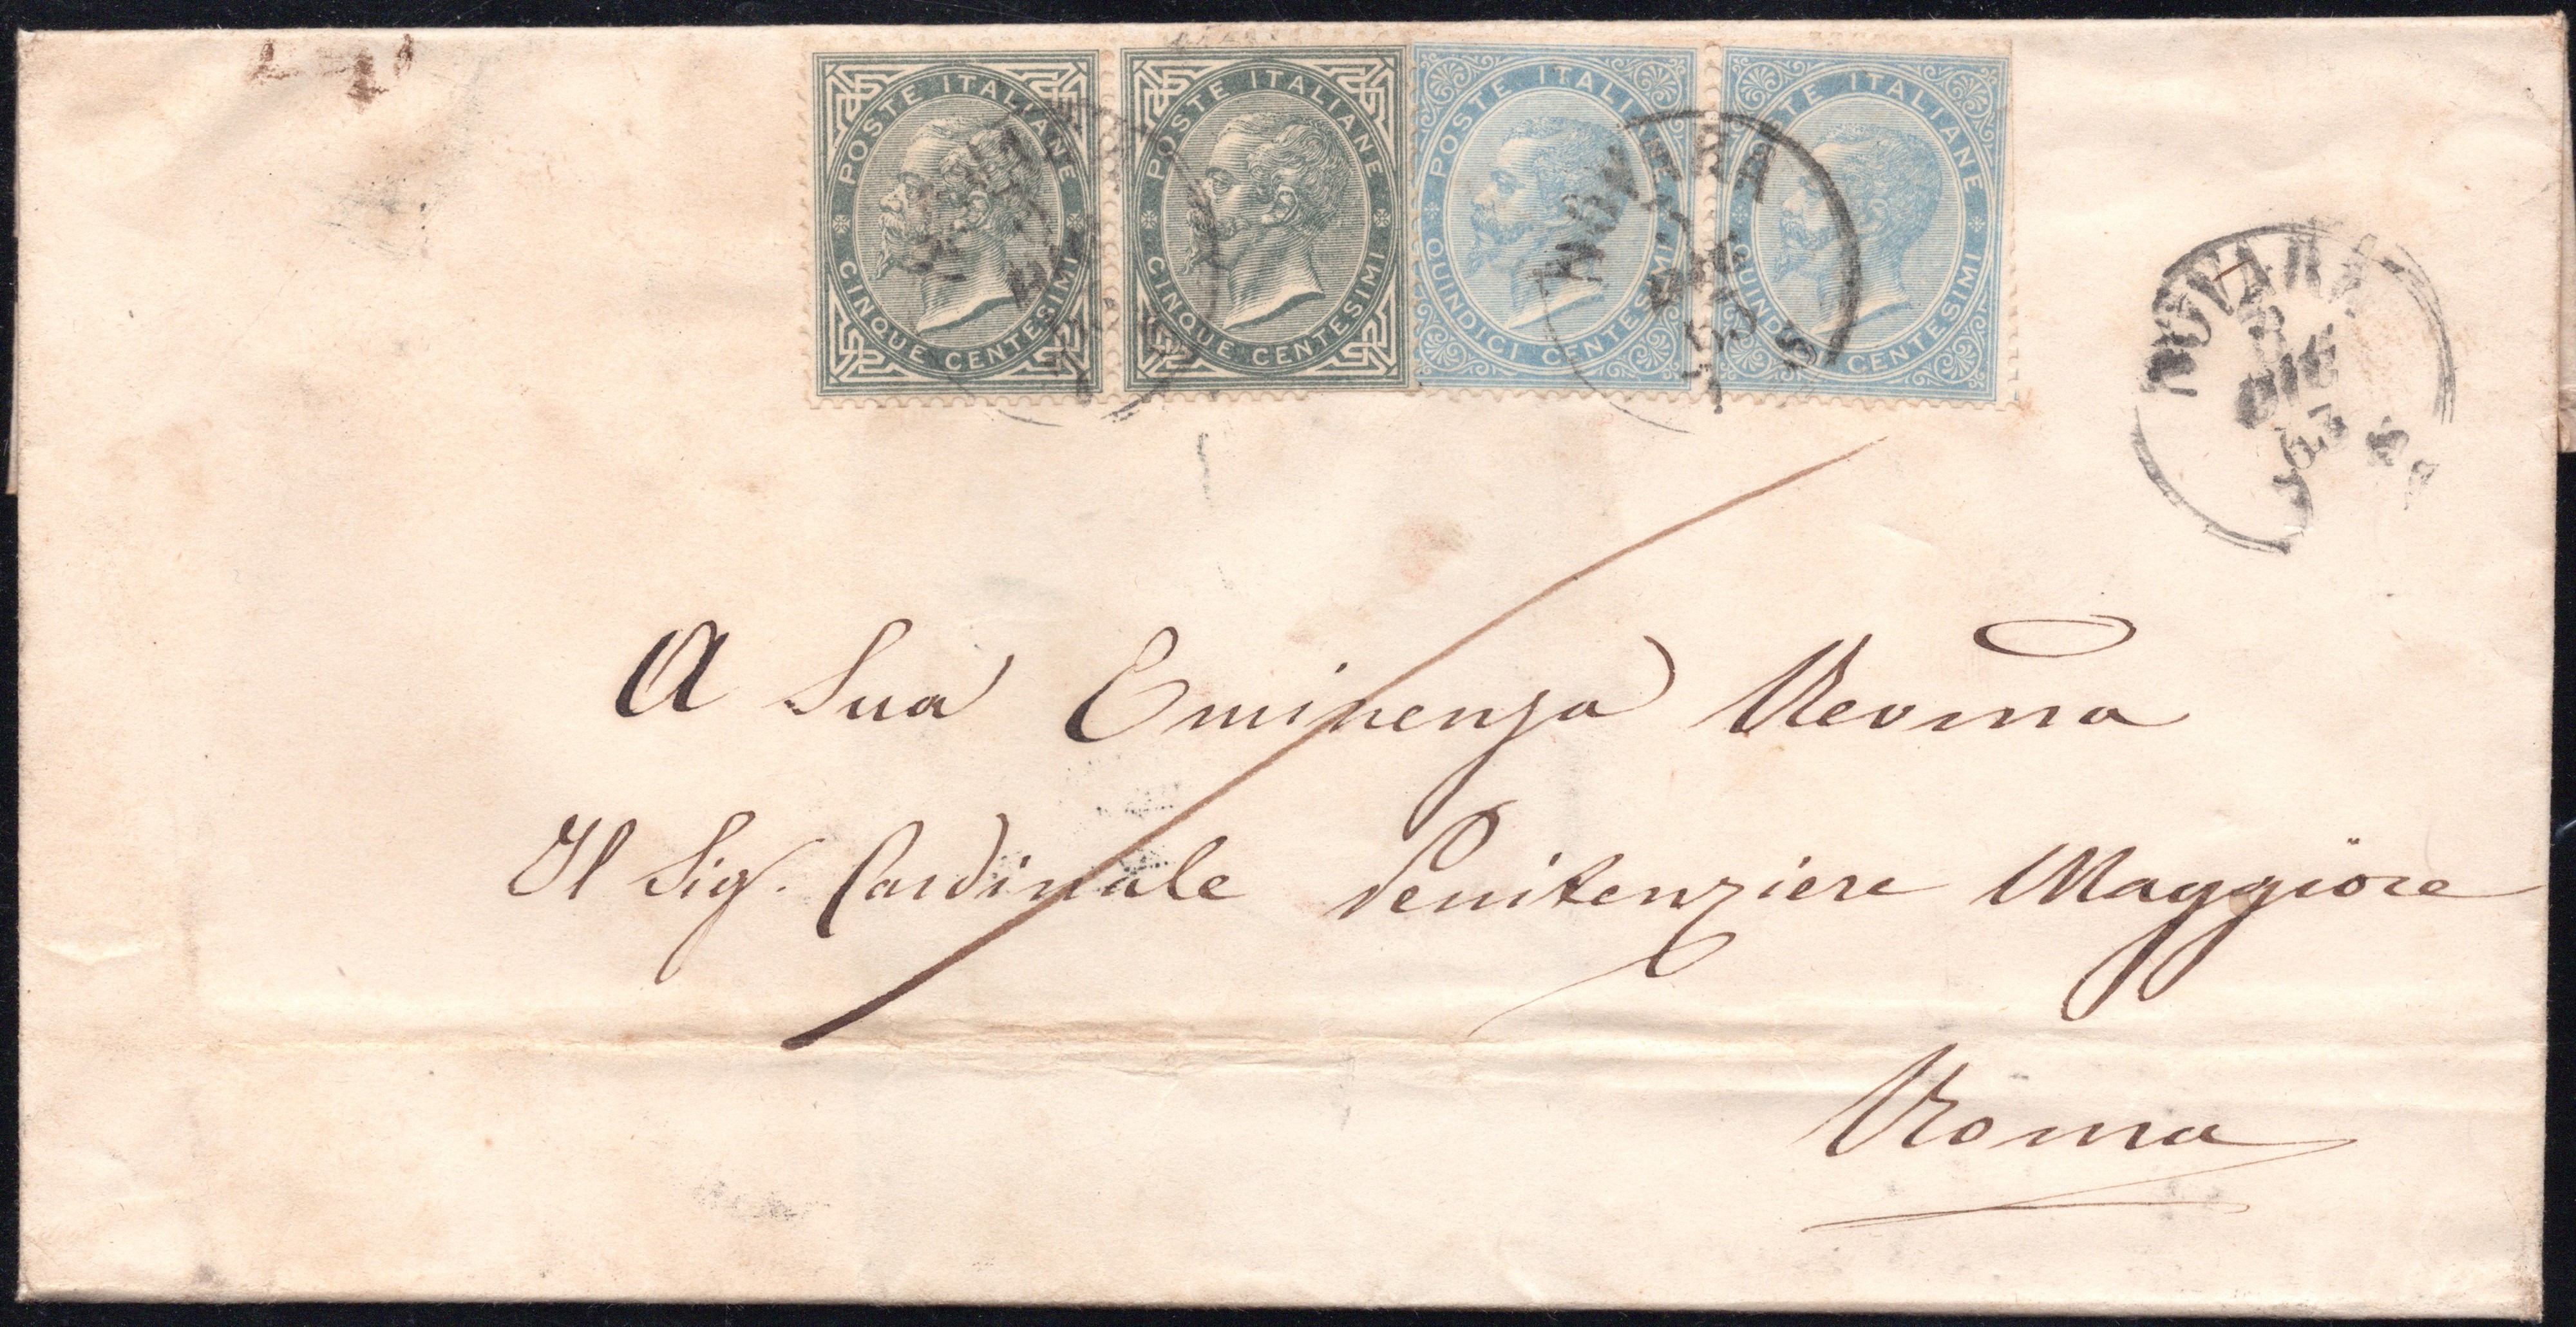 POSTE ITALIANE CINQUE CENTESIMI
POSTE ITALIANE CINQUE CENTESIMI
POSTE ITALIANE QUINDICI CENTESIMI
TE ITALIANE QUINDI CENTESIMI
NOVARA
DIC
NOVARA
DIC
63
A Sua Eminenza Revma
Il Sig. Cardinale Penitenziere Maggiore
Roma